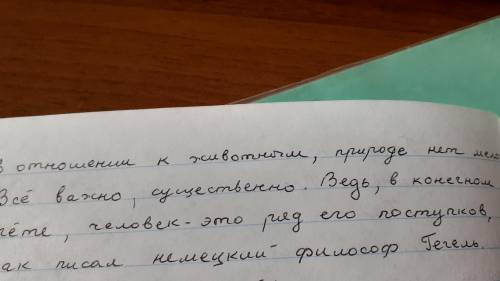 в отношении к животным, природе нет
Всё важно, существенно. Ведь, в конечном
человек - это ряд его поступков,
писал немецкий философ Гегель.